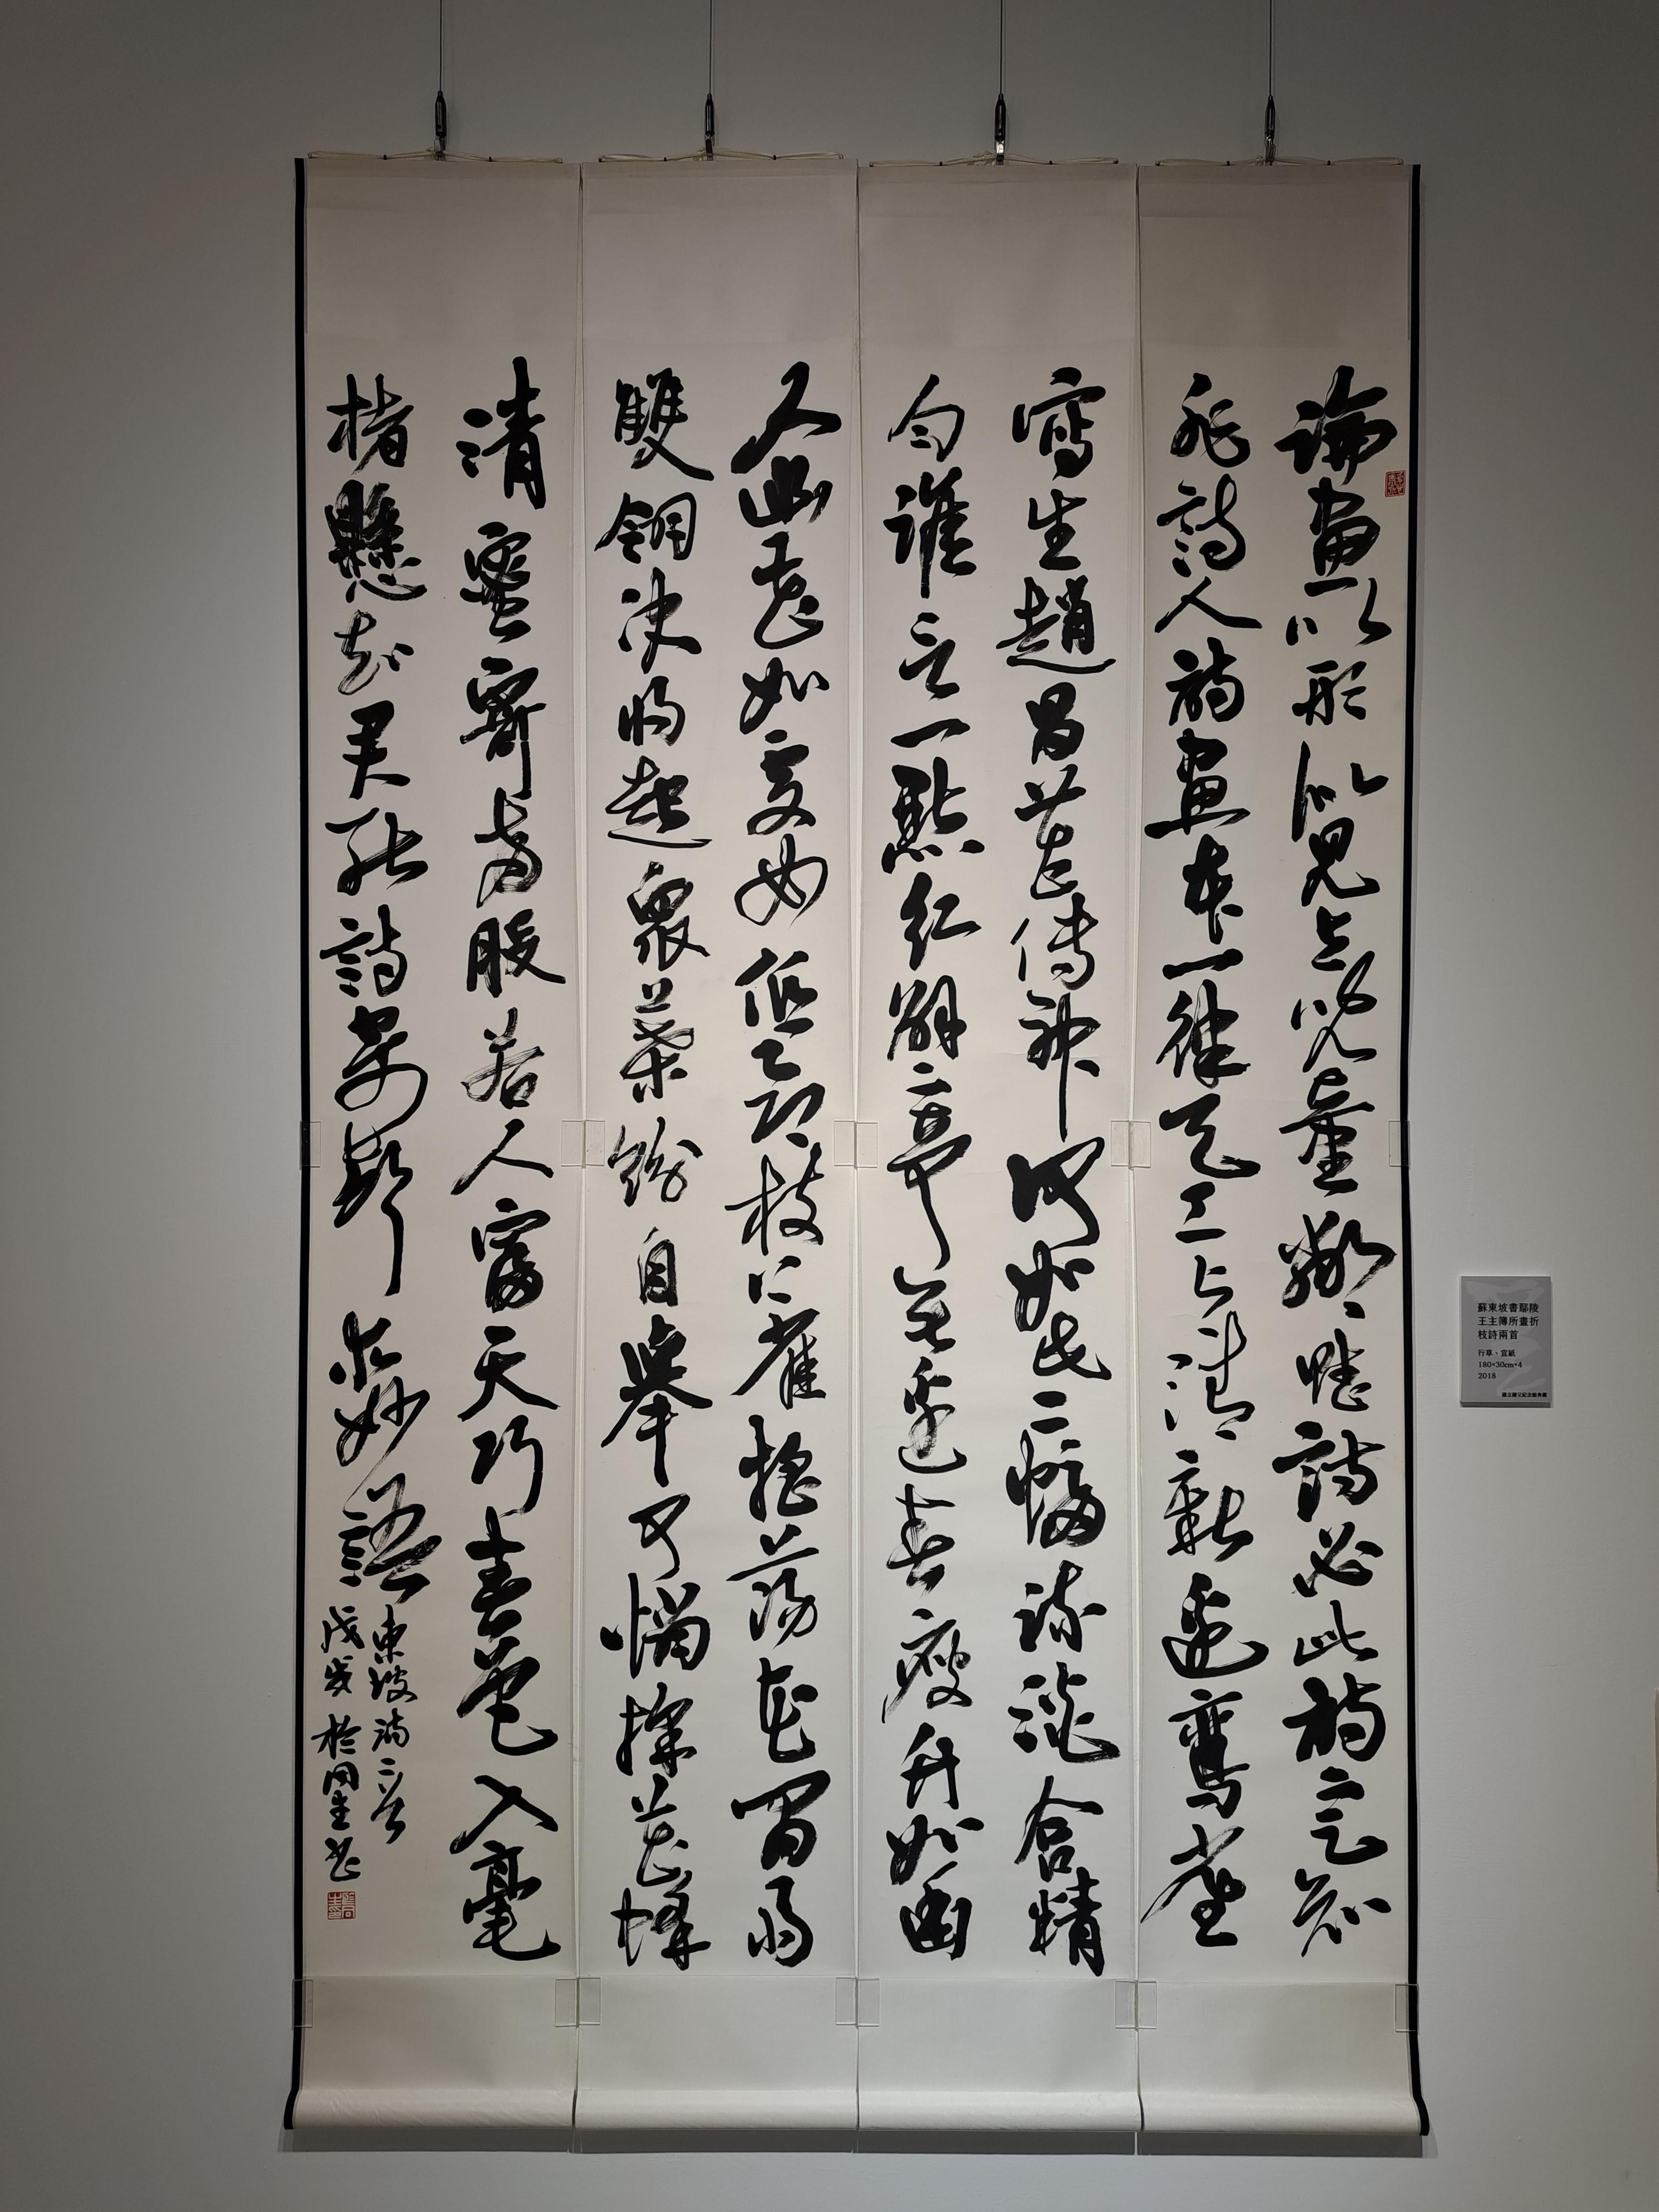 論畫以形似見與兒童鄰賦詩必此詩定知
非詩人詩畫本一律天工與清新邊鸞雀
寫生趙昌花傳神何如此二幅疎淡含精
勻誰言一點紅解寄無邊春瘦竹如幽
人幽花如處女低昂枝上雀搖蕩花間雨
雙翎決將起衆葉紛自舉可憐採花蜂
清蜜寄兩股若人富天巧春色入毫
楮懸知君能詩寄聲求妙語
東坡詩二首
戊戌於同生書
蘇東坡書鄢陵
王主簿所畫折
枝詩兩首
行草、宣紙
180×30cm×4
2018
國立國父紀念館典藏